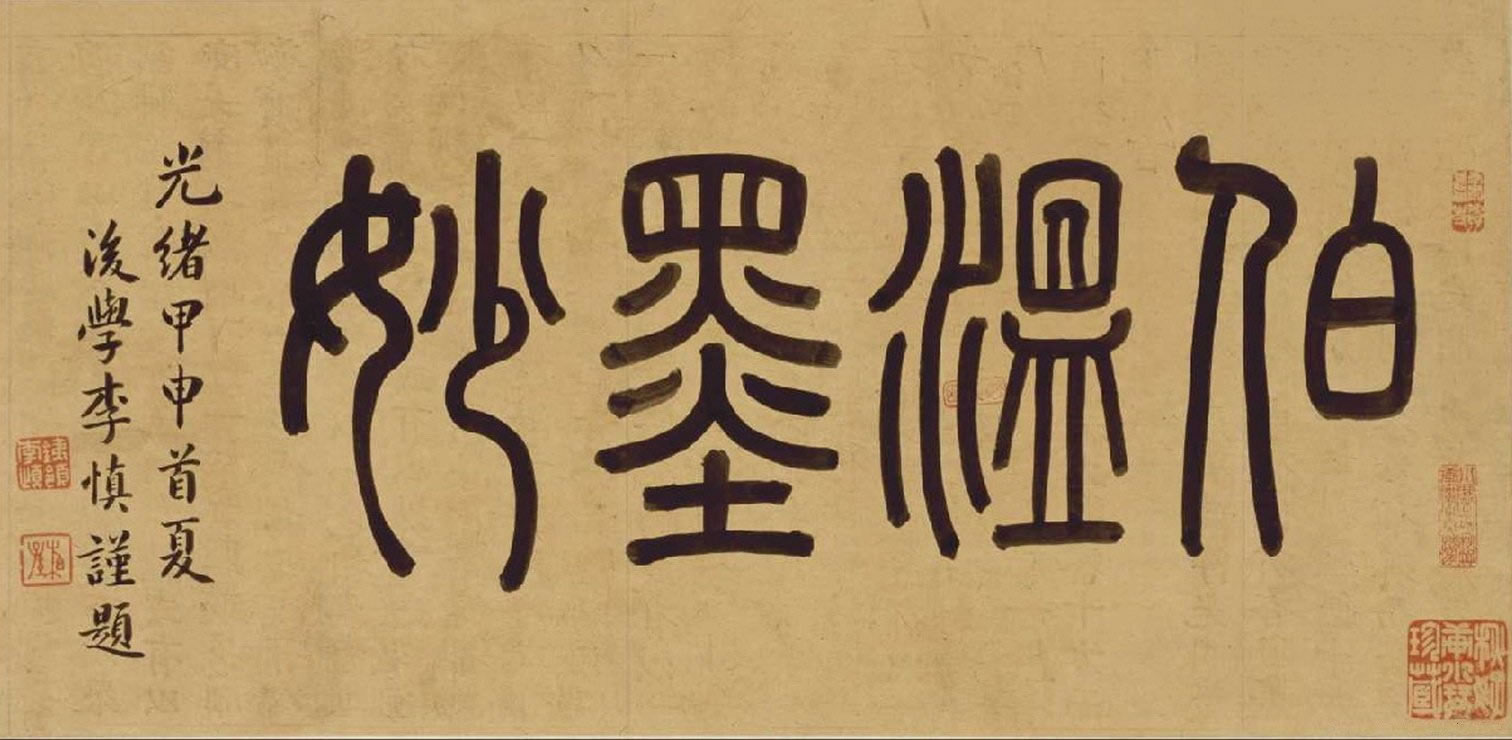 伯溫墨妙
光緒甲申首夏
後學李慎謹題